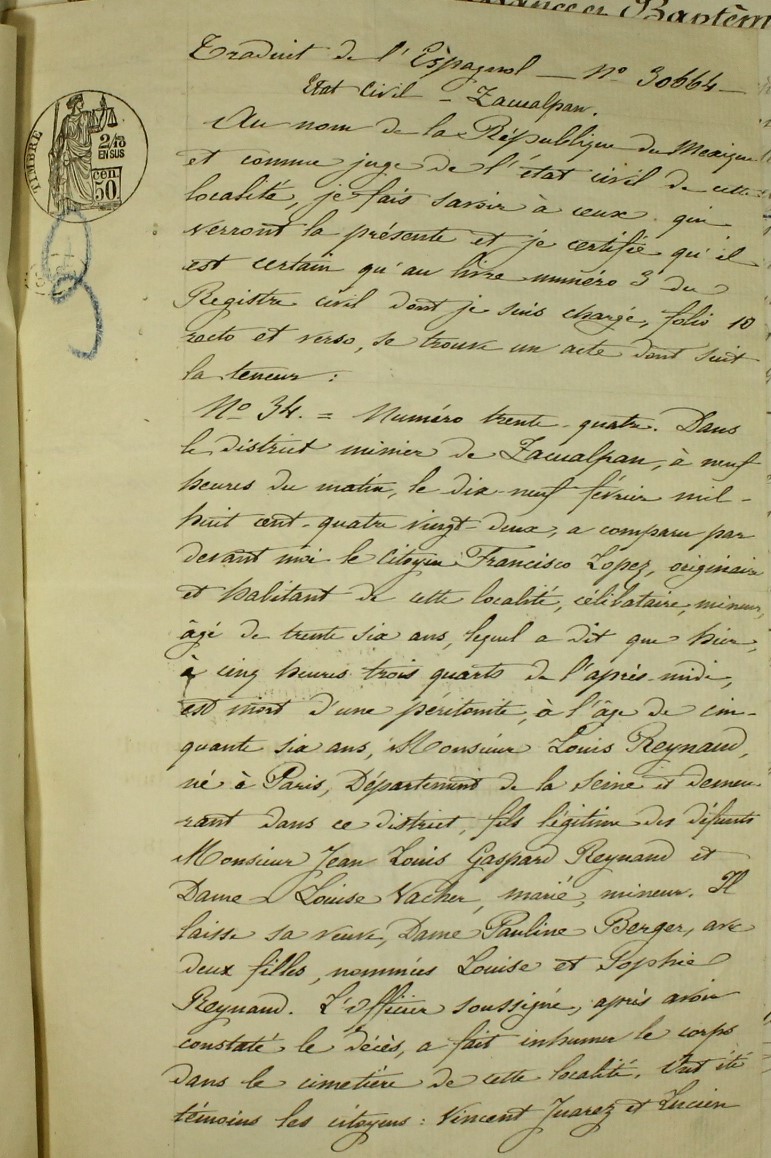 Baptêm
Traduit de l'Espagnol — No 30664 —
Etat Civil — Zacualpan.
Au nom de la République du Mexique
et comme juge de l'état civil de cette
localité, je fais savoir à ceux qui
verront la présente et je certifie qu'il
est certain qu'au livre numéro 3 du
Registre civil dont je suis chargé, folio 10
recto et verso, se trouve un acte dont suit
la teneur :
No 34. = Numéro trente-quatre. Dans
le district minier de Zacualpan, à neuf
heures du matin, le dix-neuf février mil-
huit cent-quatre vingt-deux, a comparu par
devant moi le citoyen Francisco Lopez, originaire
et habitant de cette localité, célibataire, mineur,
âgé de trente six ans, lequel a dit que hier,
à cinq heures trois quarts de l'après-midi,
est mort d'une péritonite, à l'âge de cin-
quante six ans, Monsieur Louis Reynaud,
né à Paris, Département de la Seine et demeu-
rant dans ce district, fils légitime des défunts
Monsieur Jean Louis Gaspard Reynaud et
Dame Louise Vacher, marié, mineur. Il
laisse sa veuve, Dame Pauline Berger, avec
deux filles, nommées Louise et Sophie
Reynaud. L'officier soussigné, après avoir
constaté le décès, a fait inhumer le corps
dans le cimetière de cette localité. Ont été
témoins les citoyens : Vincent Juarez et Lucien
TIMBRE
2/10
EN SUS
cen.
50